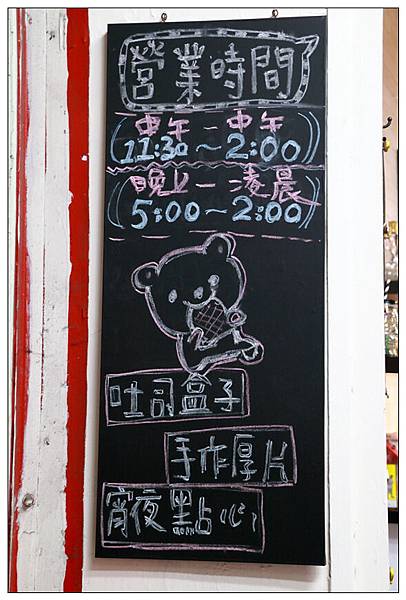 營業時間
中午～中午
(11:30～2:00)
晚上－凌晨
(5:00～2:00)
吐司盒子
手作厚片
宵夜點心